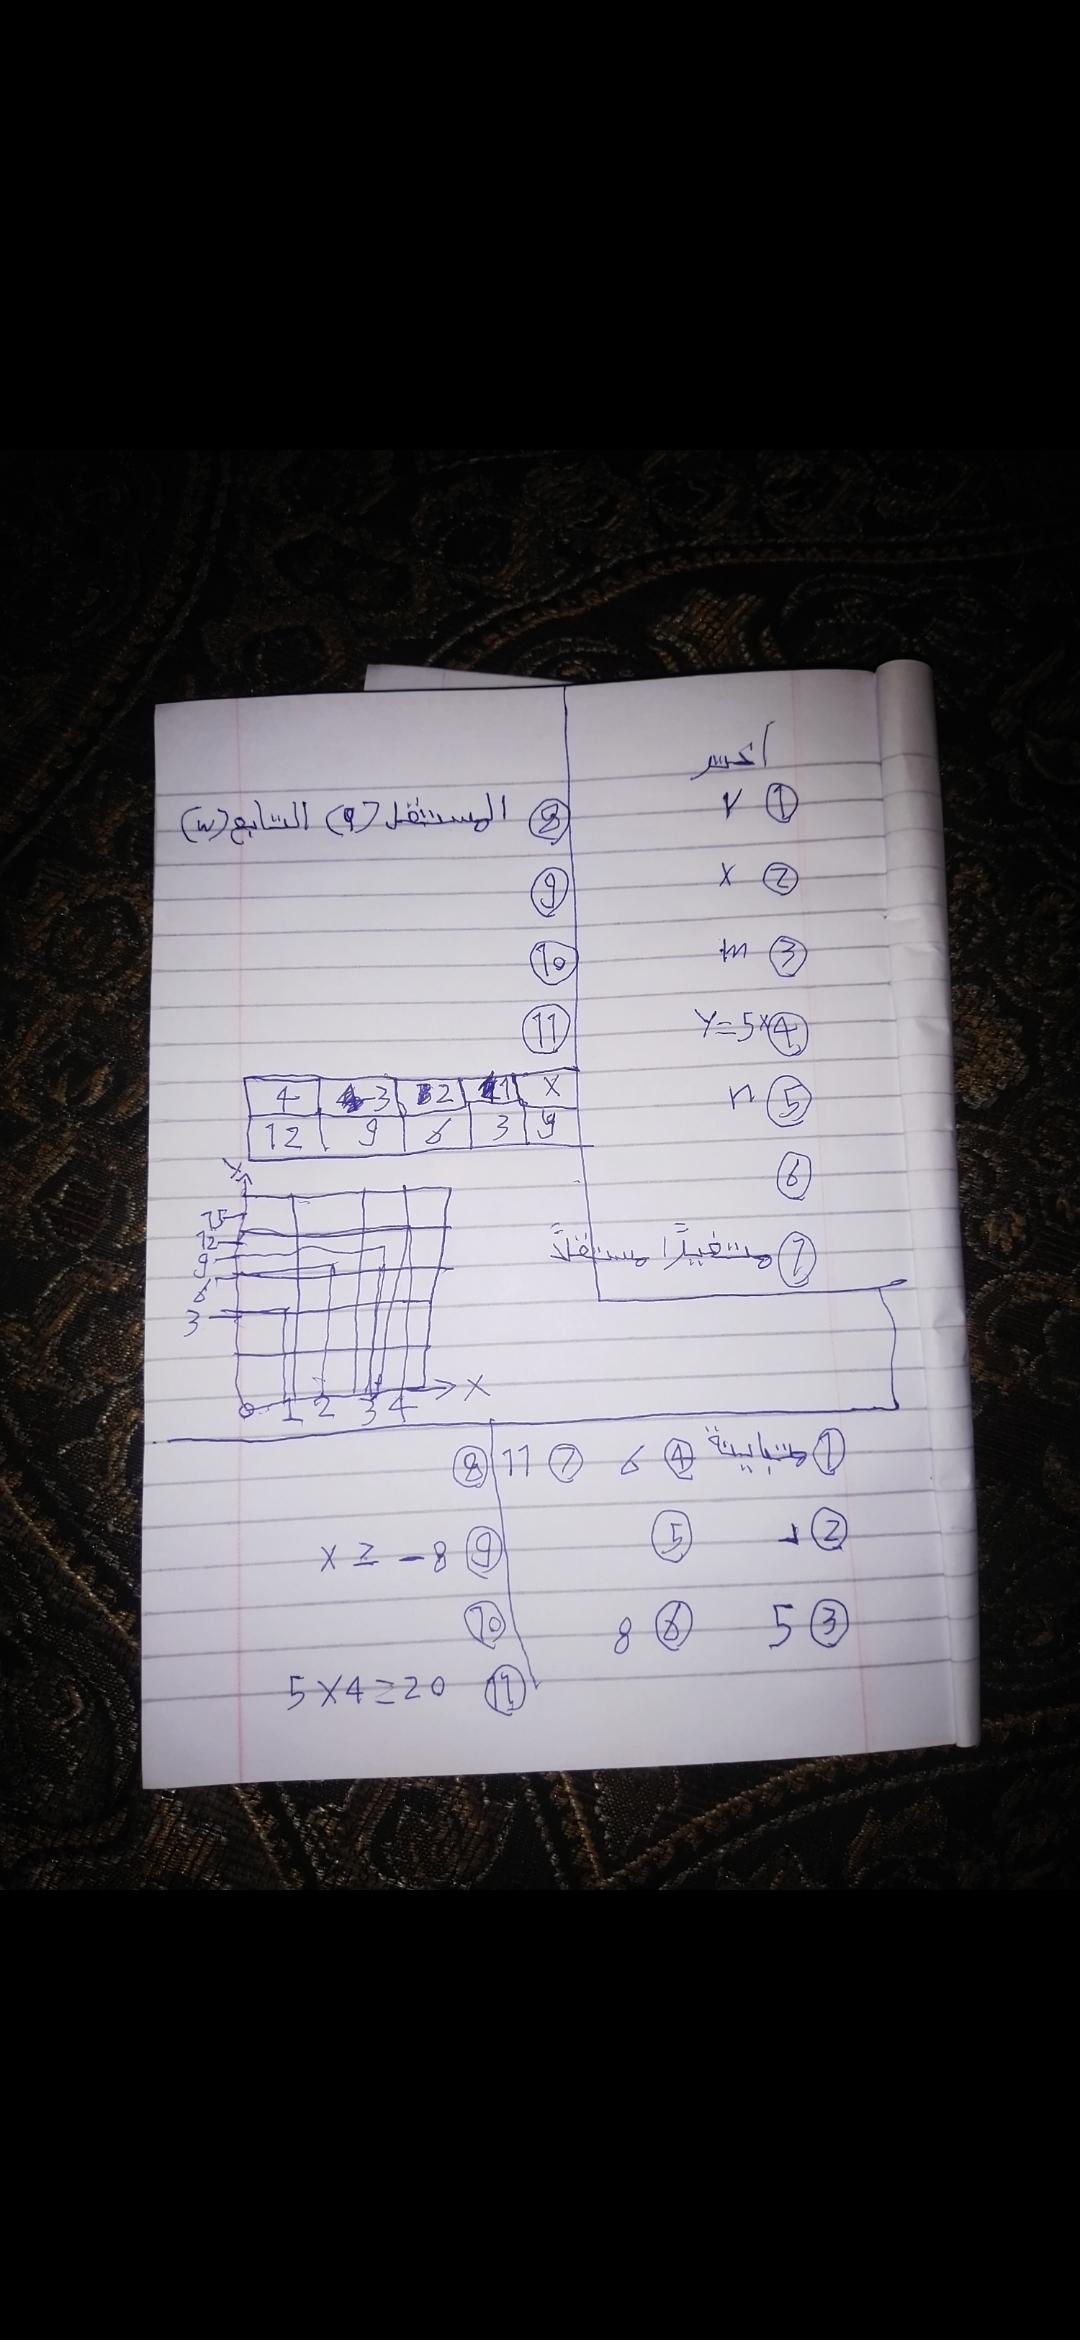 أختر
① y
② x
③ m
④ y=5x
⑤ n
⑥
⑦ متغيرًا مستقلاً
⑧ المستقل (q) التابع (w)
⑨
⑩
⑪
x 1 2 3 4
y 3 6 9 12
y
15
12
9
6
3
0 1 2 3 4 x
① متباينة ④ 6 ⑦ 11
② ⑤
③ 5 ⑥ 8
⑧
⑨ x ≥ -8
⑩
⑪ 5x4≥20